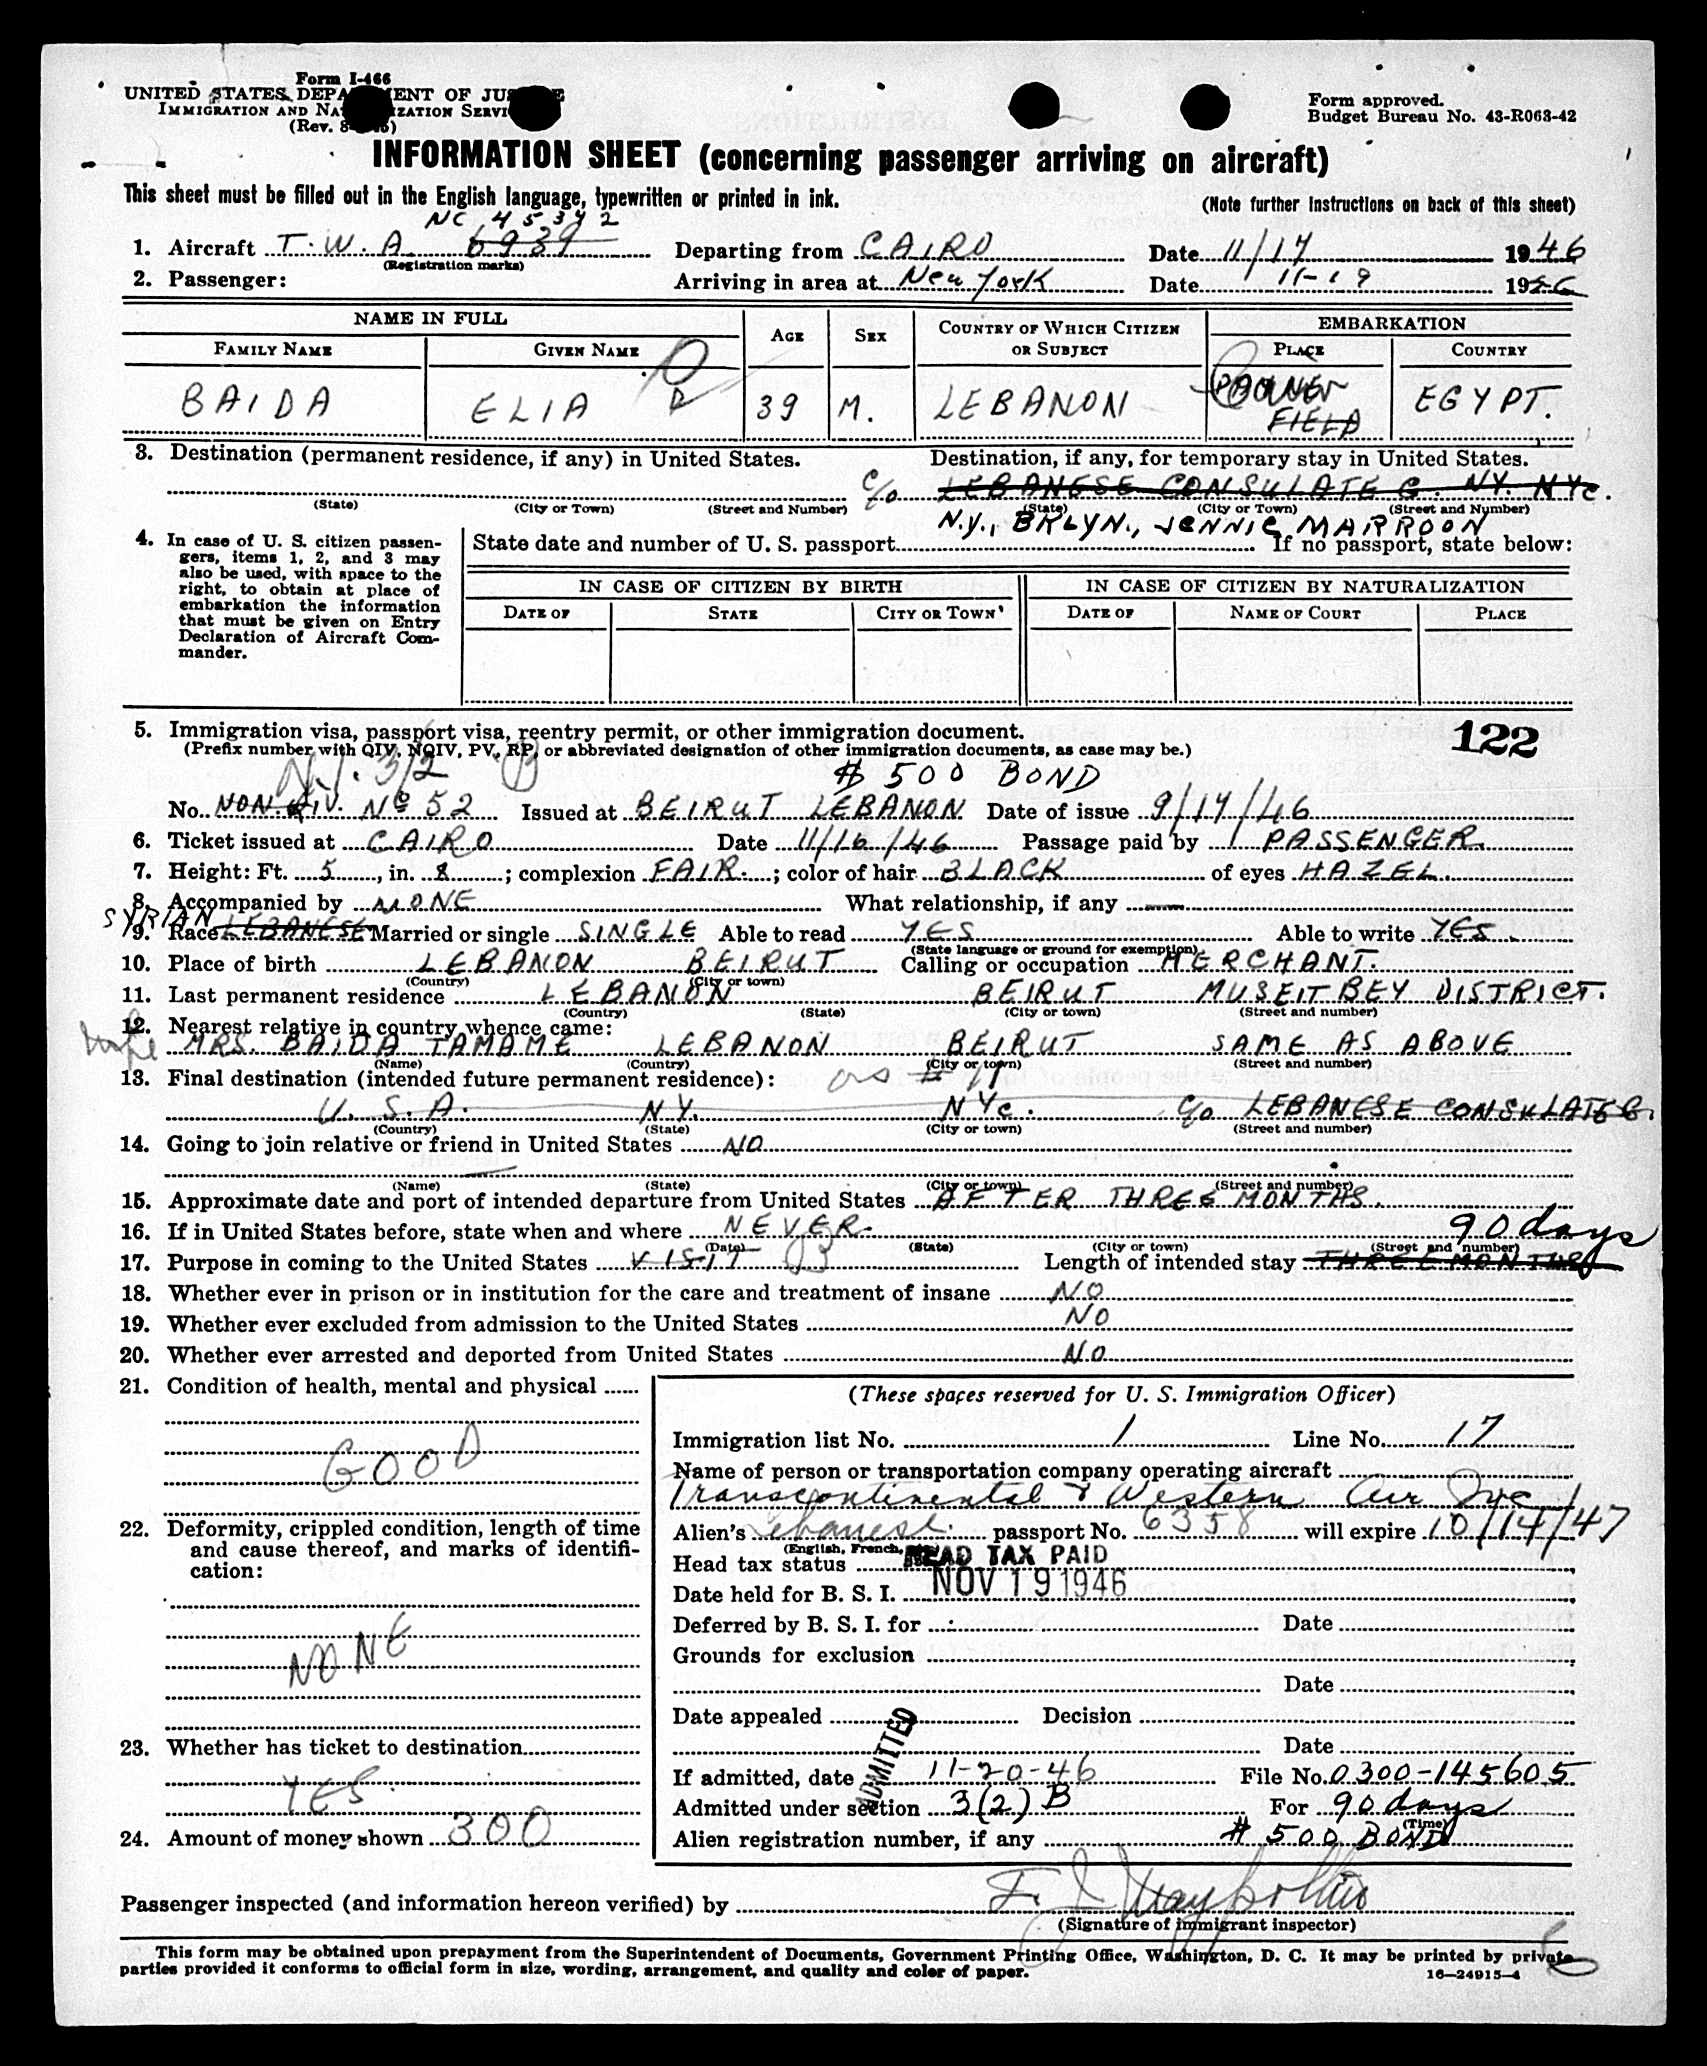 Form I-466
UNITED STATES DEPARTMENT OF JUSTICE
IMMIGRATION AND NATURALIZATION SERVICE
(Rev. 8- )
Form approved.
Budget Bureau No. 43-R063-42
INFORMATION SHEET (concerning passenger arriving on aircraft)
This sheet must be filled out in the English language, typewritten or printed in ink.
(Note further instructions on back of this sheet)
NC 45342
1. Aircraft T.W.A 6939 Departing from CAIRO Date 11/17 1946
(Registration marks)
2. Passenger: Arriving in area at New York Date 11-19 19
NAME IN FULL
FAMILY NAME GIVEN NAME AGE SEX COUNTRY OF WHICH CITIZEN OR SUBJECT EMBARKATION PLACE COUNTRY
BAIDA ELIA 39 M. LEBANON FIELD EGYPT.
3. Destination (permanent residence, if any) in United States. Destination, if any, for temporary stay in United States.
c/o LEBANESE CONSULATE G. NY. NYc.
(State) (City or Town) (Street and Number) (State) (City or Town) (Street and Number)
N.Y., BKLYN., JENNIE MARROON
4. In case of U. S. citizen passengers, items 1, 2, and 3 may also be used, with space to the right, to obtain at place of embarkation the information that must be given on Entry Declaration of Aircraft Commander.
State date and number of U. S. passport If no passport, state below:
IN CASE OF CITIZEN BY BIRTH IN CASE OF CITIZEN BY NATURALIZATION
DATE OF STATE CITY OR TOWN DATE OF NAME OF COURT PLACE
5. Immigration visa, passport visa, reentry permit, or other immigration document.
122
(Prefix number with QIV, NQIV, PV, RP, or abbreviated designation of other immigration documents, as case may be.)
3/2 B $ 500 BOND
No. NON QIV. No 52 Issued at BEIRUT LEBANON Date of issue 9/17/46
6. Ticket issued at CAIRO Date 11/16/46 Passage paid by 1 PASSENGER
7. Height: Ft. 5, in. 8; complexion FAIR.; color of hair BLACK of eyes HAZEL.
8. Accompanied by NONE What relationship, if any —
SYRIAN
9. Race LEBANESE Married or single SINGLE Able to read YES Able to write YES
(State language or ground for exemption)
10. Place of birth LEBANON BEIRUT Calling or occupation MERCHANT.
(Country) (City or town)
11. Last permanent residence LEBANON BEIRUT MUSEITBEY DISTRICT.
(Country) (State) (City or town) (Street and number)
12. Nearest relative in country whence came:
wife MRS. BAIDA TAMAME LEBANON BEIRUT SAME AS ABOVE
(Name) (Country) (City or town) (Street and number)
13. Final destination (intended future permanent residence): as # 11
U.S.A. NY. NYc. c/o LEBANESE CONSULATE G.
(Country) (State) (City or town) (Street and number)
14. Going to join relative or friend in United States NO
(Name) (State) (City or town) (Street and number)
15. Approximate date and port of intended departure from United States AFTER THREE MONTHS.
16. If in United States before, state when and where NEVER.
(Date) (State) (City or town) (Street and number)
90 days
17. Purpose in coming to the United States VISIT B Length of intended stay THREE MONTHS
18. Whether ever in prison or in institution for the care and treatment of insane NO
19. Whether ever excluded from admission to the United States NO
20. Whether ever arrested and deported from United States NO
21. Condition of health, mental and physical
GOOD
22. Deformity, crippled condition, length of time and cause thereof, and marks of identification:
NONE
23. Whether has ticket to destination
YES
24. Amount of money shown 300
(These spaces reserved for U. S. Immigration Officer)
Immigration list No. 1 Line No. 17
Name of person or transportation company operating aircraft
Transcontinental & Western Air Inc
Alien's Lebanese passport No. 6358 will expire 10/14/47
(English, French,
Head tax status HEAD TAX PAID
Date held for B. S. I. NOV 19 1946
Deferred by B. S. I. for Date
Grounds for exclusion
Date
Date appealed Decision
Date
ADMITTED
If admitted, date 11-20-46 File No. 0300-145605
Admitted under section 3(2) B For 90 days
(Time)
Alien registration number, if any # 500 BOND
Passenger inspected (and information hereon verified) by
(Signature of immigrant inspector)
This form may be obtained upon prepayment from the Superintendent of Documents, Government Printing Office, Washington, D. C. It may be printed by private
parties provided it conforms to official form in size, wording, arrangement, and quality and color of paper.
16—24915-4